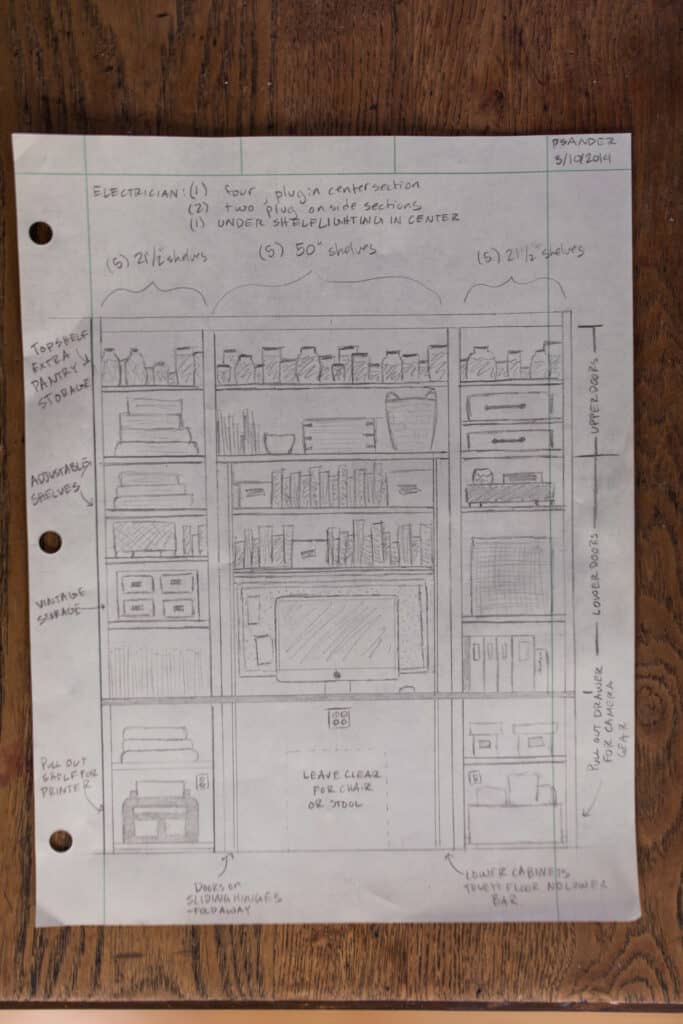 PSANDER
3/10/2014
ELECTRICIAN: (1) four plug in center section
(2) two plug on side sections
(1) UNDER SHELFLIGHTING IN CENTER
(5) 21 1/2" shelves
(5) 50" shelves
(5) 21 1/2" shelves
TOP SHELF
EXTRA
PANTRY
STORAGE
UPPER DOORS
ADJUSTABLE
SHELVES
LOWER DOORS
VINTAGE
STORAGE
PULL OUT DRAWER
FOR CAMERA
GEAR
PULL OUT
SHELF FOR
PRINTER
LEAVE CLEAR
FOR CHAIR
OR STOOL
DOORS ON
SLIDING HINGES
-FOLDAWAY
LOWER CABINETS
TOUCH FLOOR NO LOWER
BAR